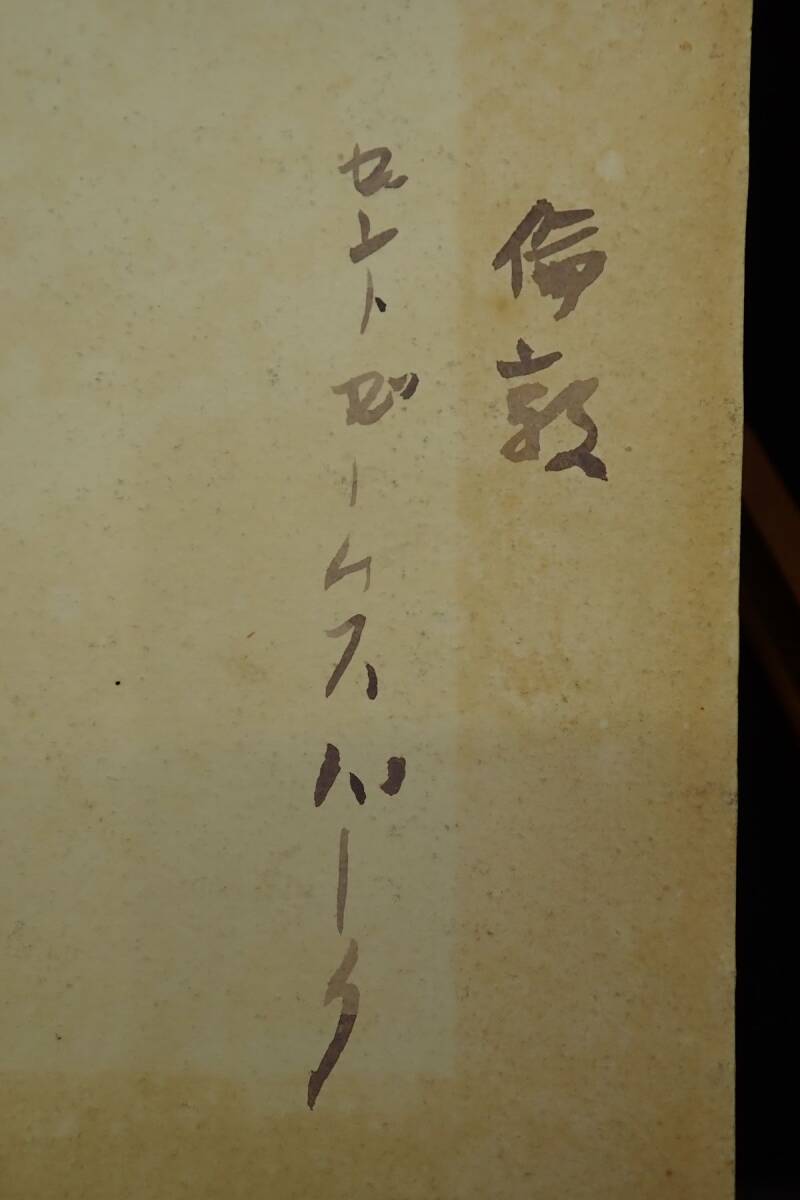 倫敦
セントゼームスパーク